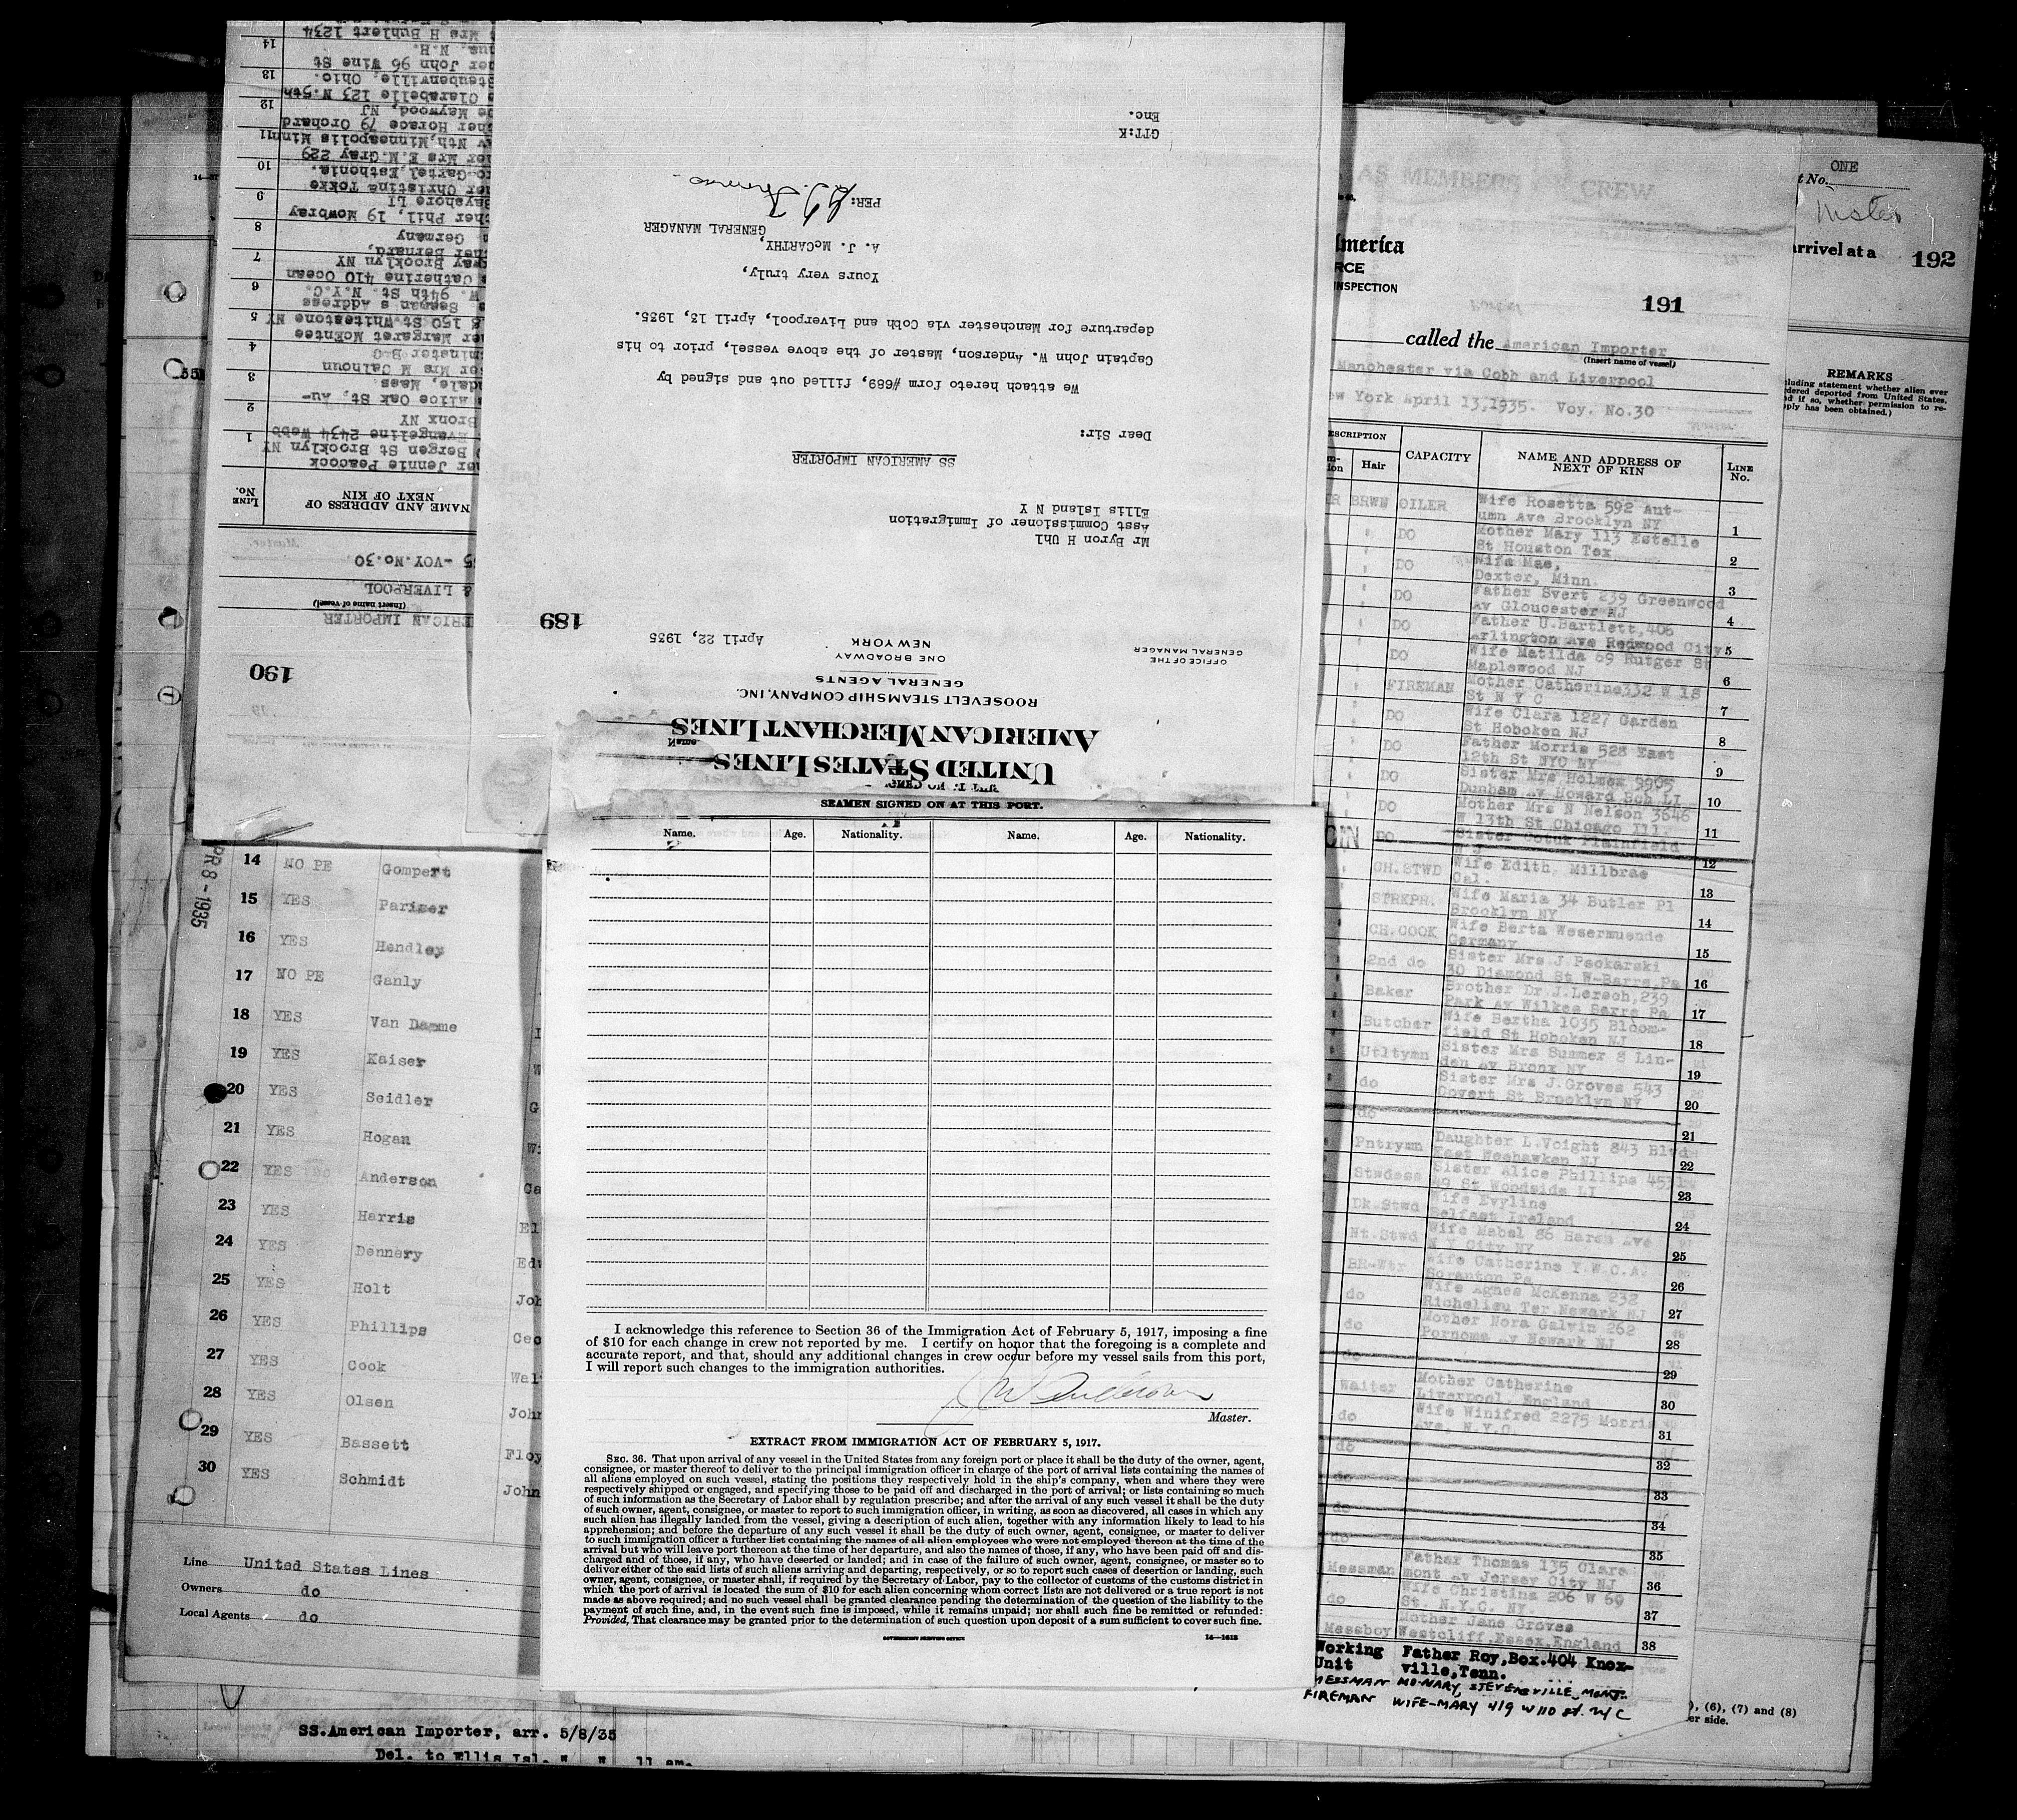 14
Mrs H Buhlert 1234
N.H.
John 96 Wine St
13
Steubenville, Ohio.
Clarabelle 123 N.5th
12
Maywood, NJ
Horace 79 Orchard
11
Nth, Minneapolis Minn
Mrs E.M.Gray 229
10
Gartel, Esthonia.
Christine Tokke
9
Bayshore LI
Phil, 19 Mowbray
8
Germany
Bernard,
7
Brooklyn NY
Catherine 410 Ocean
6
W. 94th St. N.Y.C.
Seaman s Address
5
150 St Whitestone NY
Margaret McEntee
4
Mrs M Calhoun
3
Mass
Alice Oak St, Au-
2
Bronx NY
Evangeline 2434 Webb
1
Bergen St Brooklyn NY
Jennie Peacock
LINE No.
NAME AND ADDRESS OF
NEXT OF KIN
-VOY.No.30
& LIVERPOOL
(Insert name of vessel)
ERICAN IMPORTER
190
UNITED STATES LINES
AMERICAN MERCHANT LINES
ROOSEVELT STEAMSHIP COMPANY, INC.
GENERAL AGENTS
ONE BROADWAY
NEW YORK
OFFICE OF THE
GENERAL MANAGER
April 22, 1935
189
Mr Byron H Uhl
Asst Commissioner of Immigration
Ellis Island N Y
SS AMERICAN IMPORTER
Dear Sir:
We attach hereto form #689, filled out and signed by
Captain John W. Anderson, Master of the above vessel, prior to his
departure for Manchester via Cobh and Liverpool, April 13, 1935.
Yours very truly,
A. J. McCARTHY,
GENERAL MANAGER
PER:
GTT:K
Enc.
AS MEMBERS OF CREW
ONE
t No.
arrival at a 192
REMARKS
America
RCE
INSPECTION
191
called the American Importer
(Insert name of vessel)
Manchester via Cobh and Liverpool
ew York April 13,1935. Voy. No.30
DESCRIPTION
Hair
CAPACITY
NAME AND ADDRESS OF
NEXT OF KIN
LINE No.
BRWN OILER Wife Rosetta 592 Aut-
umn Ave Brooklyn NY 1
DO Mother Mary 113 Estelle
St Houston Tex 2
DO Wife Mae,
Dexter, Minn. 3
DO Father Svert 239 Greenwood
Av Gloucester NJ 4
DO Father U.Bartlett,406
Arlington Ave Redwood City 5
DO Wife Matilda 69 Rutger St
Maplewood NJ 6
FIREMAN Mother Catherine332 W 18
St N Y C 7
DO Wife Clara 1227 Garden
St Hoboken NJ 8
DO Father Morris 528 East
12th St NYC NY 9
DO Sister Mrs Holmes 9905
Dunham Av Howard Bch LI 10
DO Mother Mrs N Nelson 3646
W 13th St Chicago Ill. 11
DO Sister Plainfield
N J 12
CH.STWD Wife Edith, Millbrae
Cal. 13
STRKPR. Wife Maria 34 Butler Pl
Brooklyn NY 14
CH.COOK Wife Berta Wesermuende
Germany 15
2nd do Sister Mrs J Psckarski
30 Diamond St W-Barre,Pa 16
Baker Brother Dr.J.Lersch,239
Park Av Wilkes Barre Pa 17
Butcher Wife Bertha 1035 Bloom-
field St Hoboken NJ 18
Utltymn Sister Mrs Summer 8 Lin-
den Av Bronx NY 19
do Sister Mrs J.Groves 543
Covert St Brooklyn NY 20
do 21
Pntrymn Daughter L.Voight 843 Blvd
East Weehawken NJ 22
Stwdess Sister Alice Phillips 4531
49 St Woodside LI 23
Dk.Stwd Wife Evyline
Belfast Ireland 24
Nt.Stwd Wife Mabel 86 Ave
N Y City NY 25
BR-Wtr Wife Catherine Y.W.C.A.
Scranton Pa 26
do Wife Agnes McKenna 232
Richelieu Ter Newark NJ 27
do Mother Nora Galvin 262
Av Newark NJ 28
do 29
Waiter Mother Catherine
Liverpool, England 30
do Wife Winifred 2275 Morris
Ave, N.Y.C. 31
do 32
do 33
do 34
do 35
Messman Father Thomas 135 Clare
mont Av Jersey City NJ 36
do Wife Christina 206 W 69
St. N.Y.C. NY 37
Messboy Mother Jane Groves
Westcliff, Essex, England 38
Working Father Roy,Box.404 Knox-
Unit ville,Tenn.
MESSMAN MO-MARY, STEVENSVILLE, MONT.
FIREMAN WIFE-MARY 419 W 110 St. NYC
, (6), (7) and (8)
er side.
SEAMEN SIGNED ON AT THIS PORT.
Name. Age. Nationality. Name. Age. Nationality.
I acknowledge this reference to Section 36 of the Immigration Act of February 5, 1917, imposing a fine
of $10 for each change in crew not reported by me. I certify on honor that the foregoing is a complete and
accurate report, and that, should any additional changes in crew occur before my vessel sails from this port,
I will report such changes to the immigration authorities.
J W Anderson
Master.
EXTRACT FROM IMMIGRATION ACT OF FEBRUARY 5, 1917.
SEC. 36. That upon arrival of any vessel in the United States from any foreign port or place it shall be the duty of the owner, agent,
consignee, or master thereof to deliver to the principal immigration officer in charge of the port of arrival lists containing the names of
all aliens employed on such vessel, stating the positions they respectively hold in the ship's company, when and where they were
respectively shipped or engaged, and specifying those to be paid off and discharged in the port of arrival; or lists containing so much
of such information as the Secretary of Labor shall by regulation prescribe; and after the arrival of any such vessel it shall be the duty
of such owner, agent, consignee, or master to report to such immigration officer, in writing, as soon as discovered, all cases in which any
such alien has illegally landed from the vessel, giving a description of such alien, together with any information likely to lead to his
apprehension; and before the departure of any such vessel it shall be the duty of such owner, agent, consignee, or master to deliver
to such immigration officer a further list containing the names of all alien employees who were not employed thereon at the time of the
arrival but who will leave port thereon at the time of her departure, and also the names of those, if any, who have been paid off and dis-
charged and of those, if any, who have deserted or landed; and in case of the failure of such owner, agent, consignee, or master so to
deliver either of the said lists of such aliens arriving and departing, respectively, or so to report such cases of desertion or landing, such
owner, agent, consignee, or master shall, if required by the Secretary of Labor, pay to the collector of customs of the customs district in
which the port of arrival is located the sum of $10 for each alien concerning whom correct lists are not delivered or a true report is not
made as above required; and no such vessel shall be granted clearance pending the determination of the question of the liability to the
payment of such fine, and, in the event such fine is imposed, while it remains unpaid; nor shall such fine be remitted or refunded:
Provided, That clearance may be granted prior to the determination of such question upon deposit of a sum sufficient to cover such fine.
GOVERNMENT PRINTING OFFICE
14—1618
PR 8 - 1935
14 NO PE Gompert
15 YES Pariser
16 YES Hendley
17 NO PE Ganly
18 YES Van Damme
19 YES Kaiser
20 YES Seidler
21 YES Hogan
22 YES Anderson
23 YES Harris
24 YES Dennery
25 YES Holt
26 YES Phillips
27 YES Cook
28 YES Olsen
29 YES Bassett
30 YES Schmidt
Line United States Lines
Owners do
Local Agents do
SS.American Importer, arr. 5/8/35
Del. to Ellis Isl. " " 11 am.